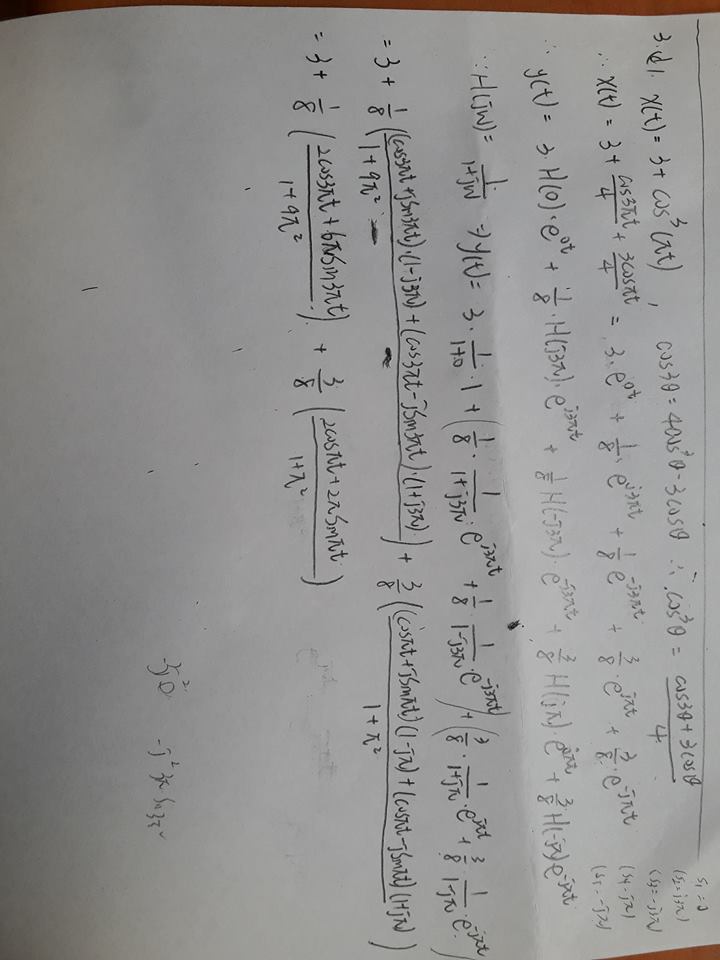 3.d). x(t) = 3 + cos³(πt), cos3θ = 4cos³θ - 3cosθ ∴ cos³θ = (cos3θ + 3cosθ)/4
∴ x(t) = 3 + cos3πt/4 + 3cosπt/4 = 3·e^{0t} + 1/8·e^{j3πt} + 1/8 e^{-j3πt} + 3/8·e^{jπt} + 3/8·e^{-jπt}
s₁ = 0
(s₂ = j3π)
(s₃ = -j3π)
(s₄ = jπ)
(s₅ = -jπ)
∴ y(t) = 3·H(0)·e^{0t} + 1/8·H(j3π)·e^{j3πt} + 1/8 H(-j3π)·e^{-j3πt} + 3/8 H(jπ)·e^{jπt} + 3/8 H(-jπ) e^{-jπt}
∵ H(jw) = 1/(1+jw) ⇒ y(t) = 3·1/(1+0)·1 + (1/8·1/(1+j3π)·e^{j3πt} + 1/8·1/(1-j3π)·e^{-j3πt}) + (3/8·1/(1+jπ)·e^{jπt} + 3/8·1/(1-jπ)·e^{-jπt})
= 3 + 1/8 (((cos3πt + jsin3πt)·(1-j3π) + (cos3πt - jsin3πt)·(1+j3π))/(1+9π²)) + 3/8 (((cosπt + jsinπt)(1-jπ) + (cosπt - jsinπt)(1+jπ))/(1+π²))
= 3 + 1/8 ((2cos3πt + 6πsin3πt)/(1+9π²)) + 3/8 ((2cosπt + 2πsinπt)/(1+π²))